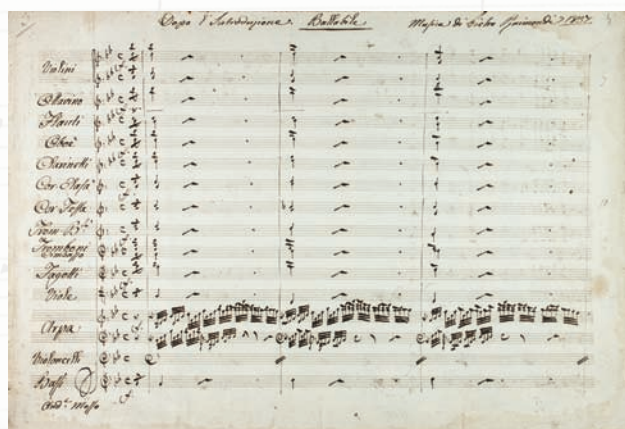 Dopo l'Introduzione. Ballabile Musica di Pietro Raimondi 1837.
Violini
Ottavino
Flauti
Oboè
Clarinetti
Cor:
Cor:
Trom:
Tromboni
Fagotti
Viole
Arpa
Violoncelli
Bassi
And.te Mosso